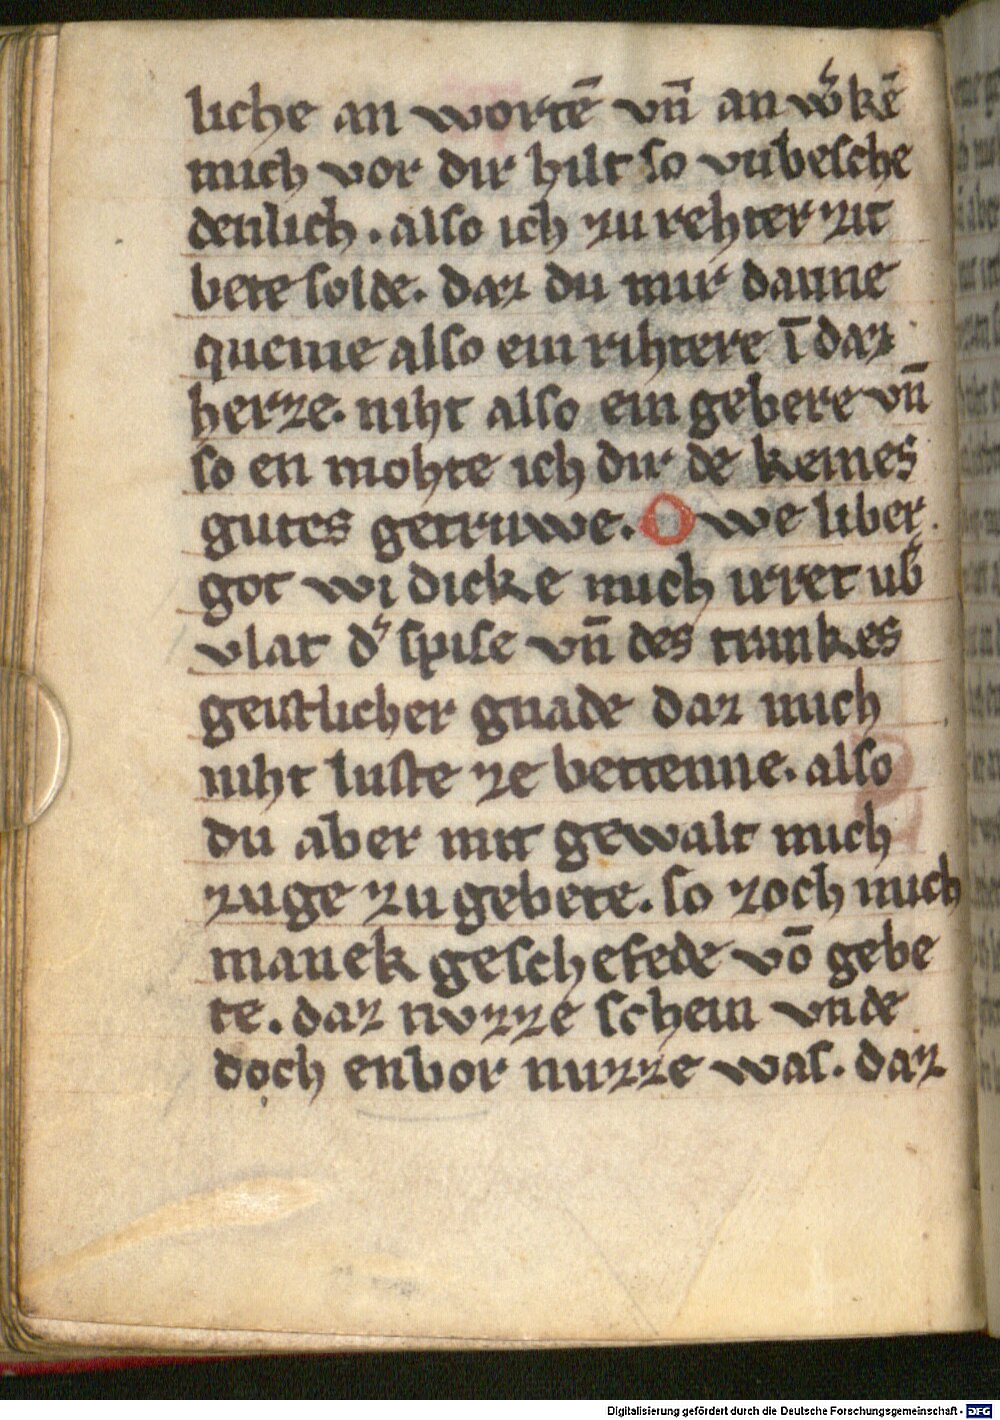 liche an wortē vn̄ an w̾kē
mich vor dir hilt so vnbesche
denlich . also ich zu rehter zit
bete solde . daz du mir danne
queme also ein rihtere ī daz
herze . niht also ein gebere vn̄
so en mohte ich dir de keines
gutes getruwe . O we liber
got wi dicke mich irret ub̾
vlat d̾ spise vn̄ des trinkes
geistlicher gnade daz mich
niht luste ze bettenne . also
du aber mit gewalt mich
zuge zu gebete . so zoch mich
manek geschefede vō gebe
te . daz nvzze schein vnde
doch enbor nuzze was . daz
Digitalisierung gefördert durch die Deutsche Forschungsgemeinschaft - DFG